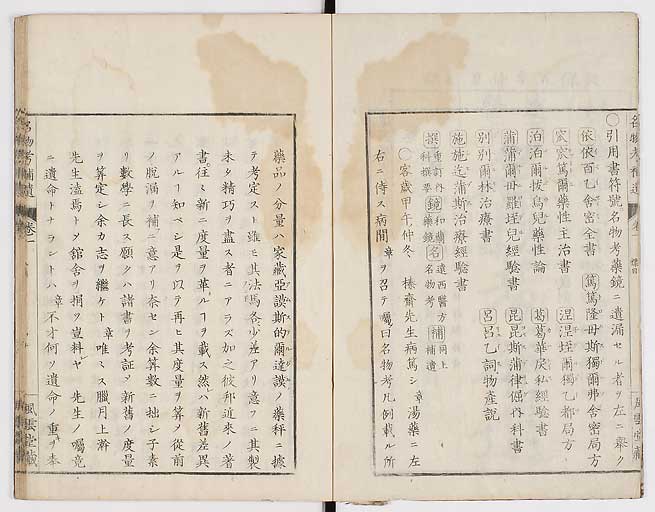 〇引用書符號名物考藥鏡ニ遺漏セル者ヲ左ニ舉ク
依 依百乙舎密全書 篤 篤隆毋斯獨爾弗舎密局方
宏 宏篤爾藥性主治書 涅 涅涅垤爾獨乙都局方
泊 泊泊爾拔烏兒藥性論 葛 葛葛華戾私經驗書
蒲 蒲蒲爾毋羅垤兒經驗書 昆 昆昆斯蒲律倔內科書
別 別爾林治療書 呂 呂呂乙詞物產說
施 施施迄蒲斯治療經驗書
撰 重訂內科撰要 鏡 和蘭藥鏡 名 遠西醫方名物考 補 同上補遺
〇客歲甲午仲冬 榛齋先生病篤シ 章湯藥ニ左
右ニ侍ス病間 章ヲ召テ嘱曰名物考凡例載ル所
藥品ノ分量ハ家藏亞謨斯的爾達謨ノ藥秤ニ據
テ考定スト雖モ其法馬各少差アリ意フニ其製
未タ精巧ヲ盡ス者ニアラズ加之彼邦近來ノ著
書往々新ニ度量ヲ革ルヿヲ載ス然ハ新舊差異
アルヿ知ベシ是ヲ以テ再ヒ其度量ヲ算メ從前
ノ脫漏ヲ補フ意アリ奈セン余算數ニ拙シ子素
リ數學ニ長ス願クハ諸書ヲ考証シ新舊ノ度量
ヲ算定シ余カ志ヲ繼ケト 章唯々ス臘月上澣
先生溘焉トメ館舍ヲ捐ツ豈料ヤ 先生ノ嘱竟
ニ遺命トナラントハ 章不才何ソ遺命ノ重ヲ奉
名物考補遺 卷一
風雲堂藏